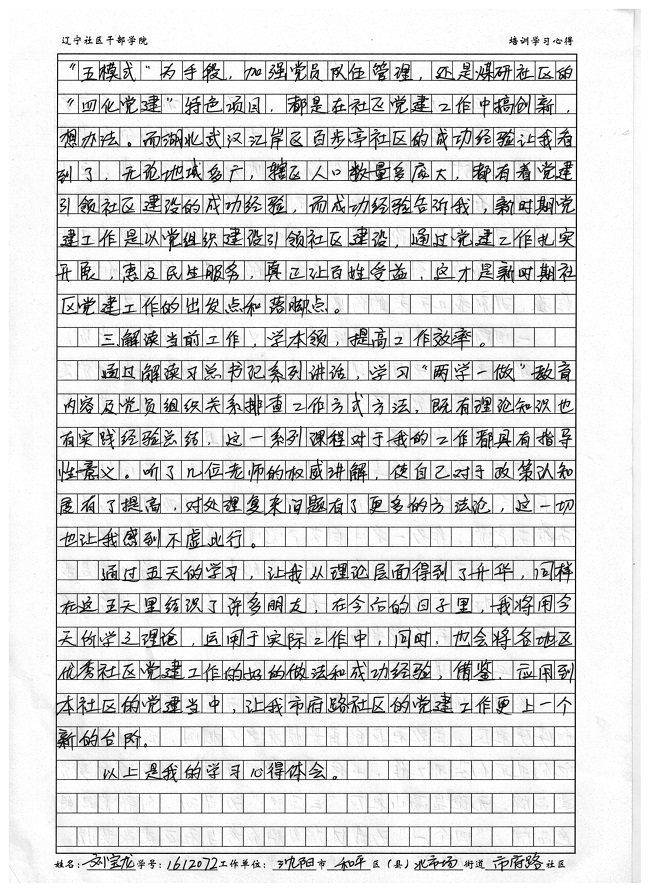 辽宁社区干部学院 培训学习心得
"五模式"为手段，加强党员队伍管理，还是煤研社区的
"四化党建"特色项目，都是在社区党建工作中搞创新，
想办法。而湖北武汉江岸区百步亭社区的成功经验让我看
到了，无论地域多广，辖区人口数量多庞大，都有着党建
引领社区建设的成功经验，而成功经验告诉我，新时期党
建工作是以党组织建设引领社区建设，通过党建工作扎实
开展，惠及民生服务，真正让百姓受益，这才是新时期社
区党建工作的出发点和落脚点。
三.解读当前工作，学本领，提高工作效率。
通过解读习总书记系列讲话，学习"两学一做"教育
内容及党员组织关系排查工作方式方法，既有理论知识也
有实践经验总结，这一系列课程对于我的工作都具有指导
性意义。听了几位老师的权威讲解，使自己对于政策认知
度有了提高，对处理复杂问题有了更多的方法论，这一切
也让我感到不虚此行。
通过五天的学习，让我从理论层面得到了升华，同样
在这五天里结识了许多朋友，在今后的日子里，我将用今
天所学之理论，运用于实际工作中，同时，也会将各地区
优秀社区党建工作的好的做法和成功经验，借鉴、应用到
本社区的党建当中，让我市府路社区的党建工作更上一个
新的台阶。
以上是我的学习心得体会。
姓名：刘宝龙 学号：1612072 工作单位：沈阳市 和平区（县）北市场街道 市府路社区